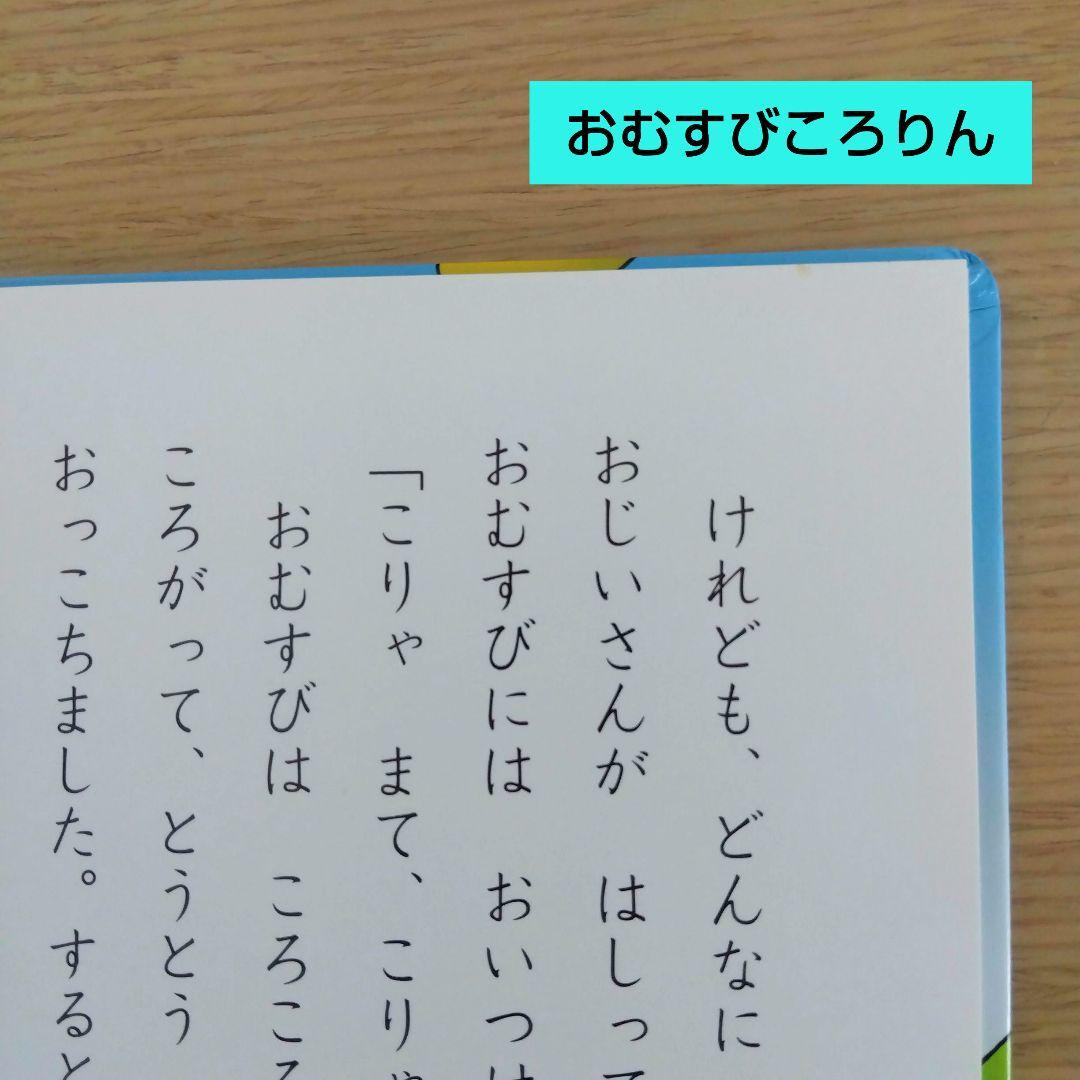 おむすびころりん
けれども、どんなに
おじいさんが　はしって
おむすびには　おいつけ
「こりゃ　まて、こりゃ
おむすびは　ころころ
ころがって、とうとう
おっこちました。すると